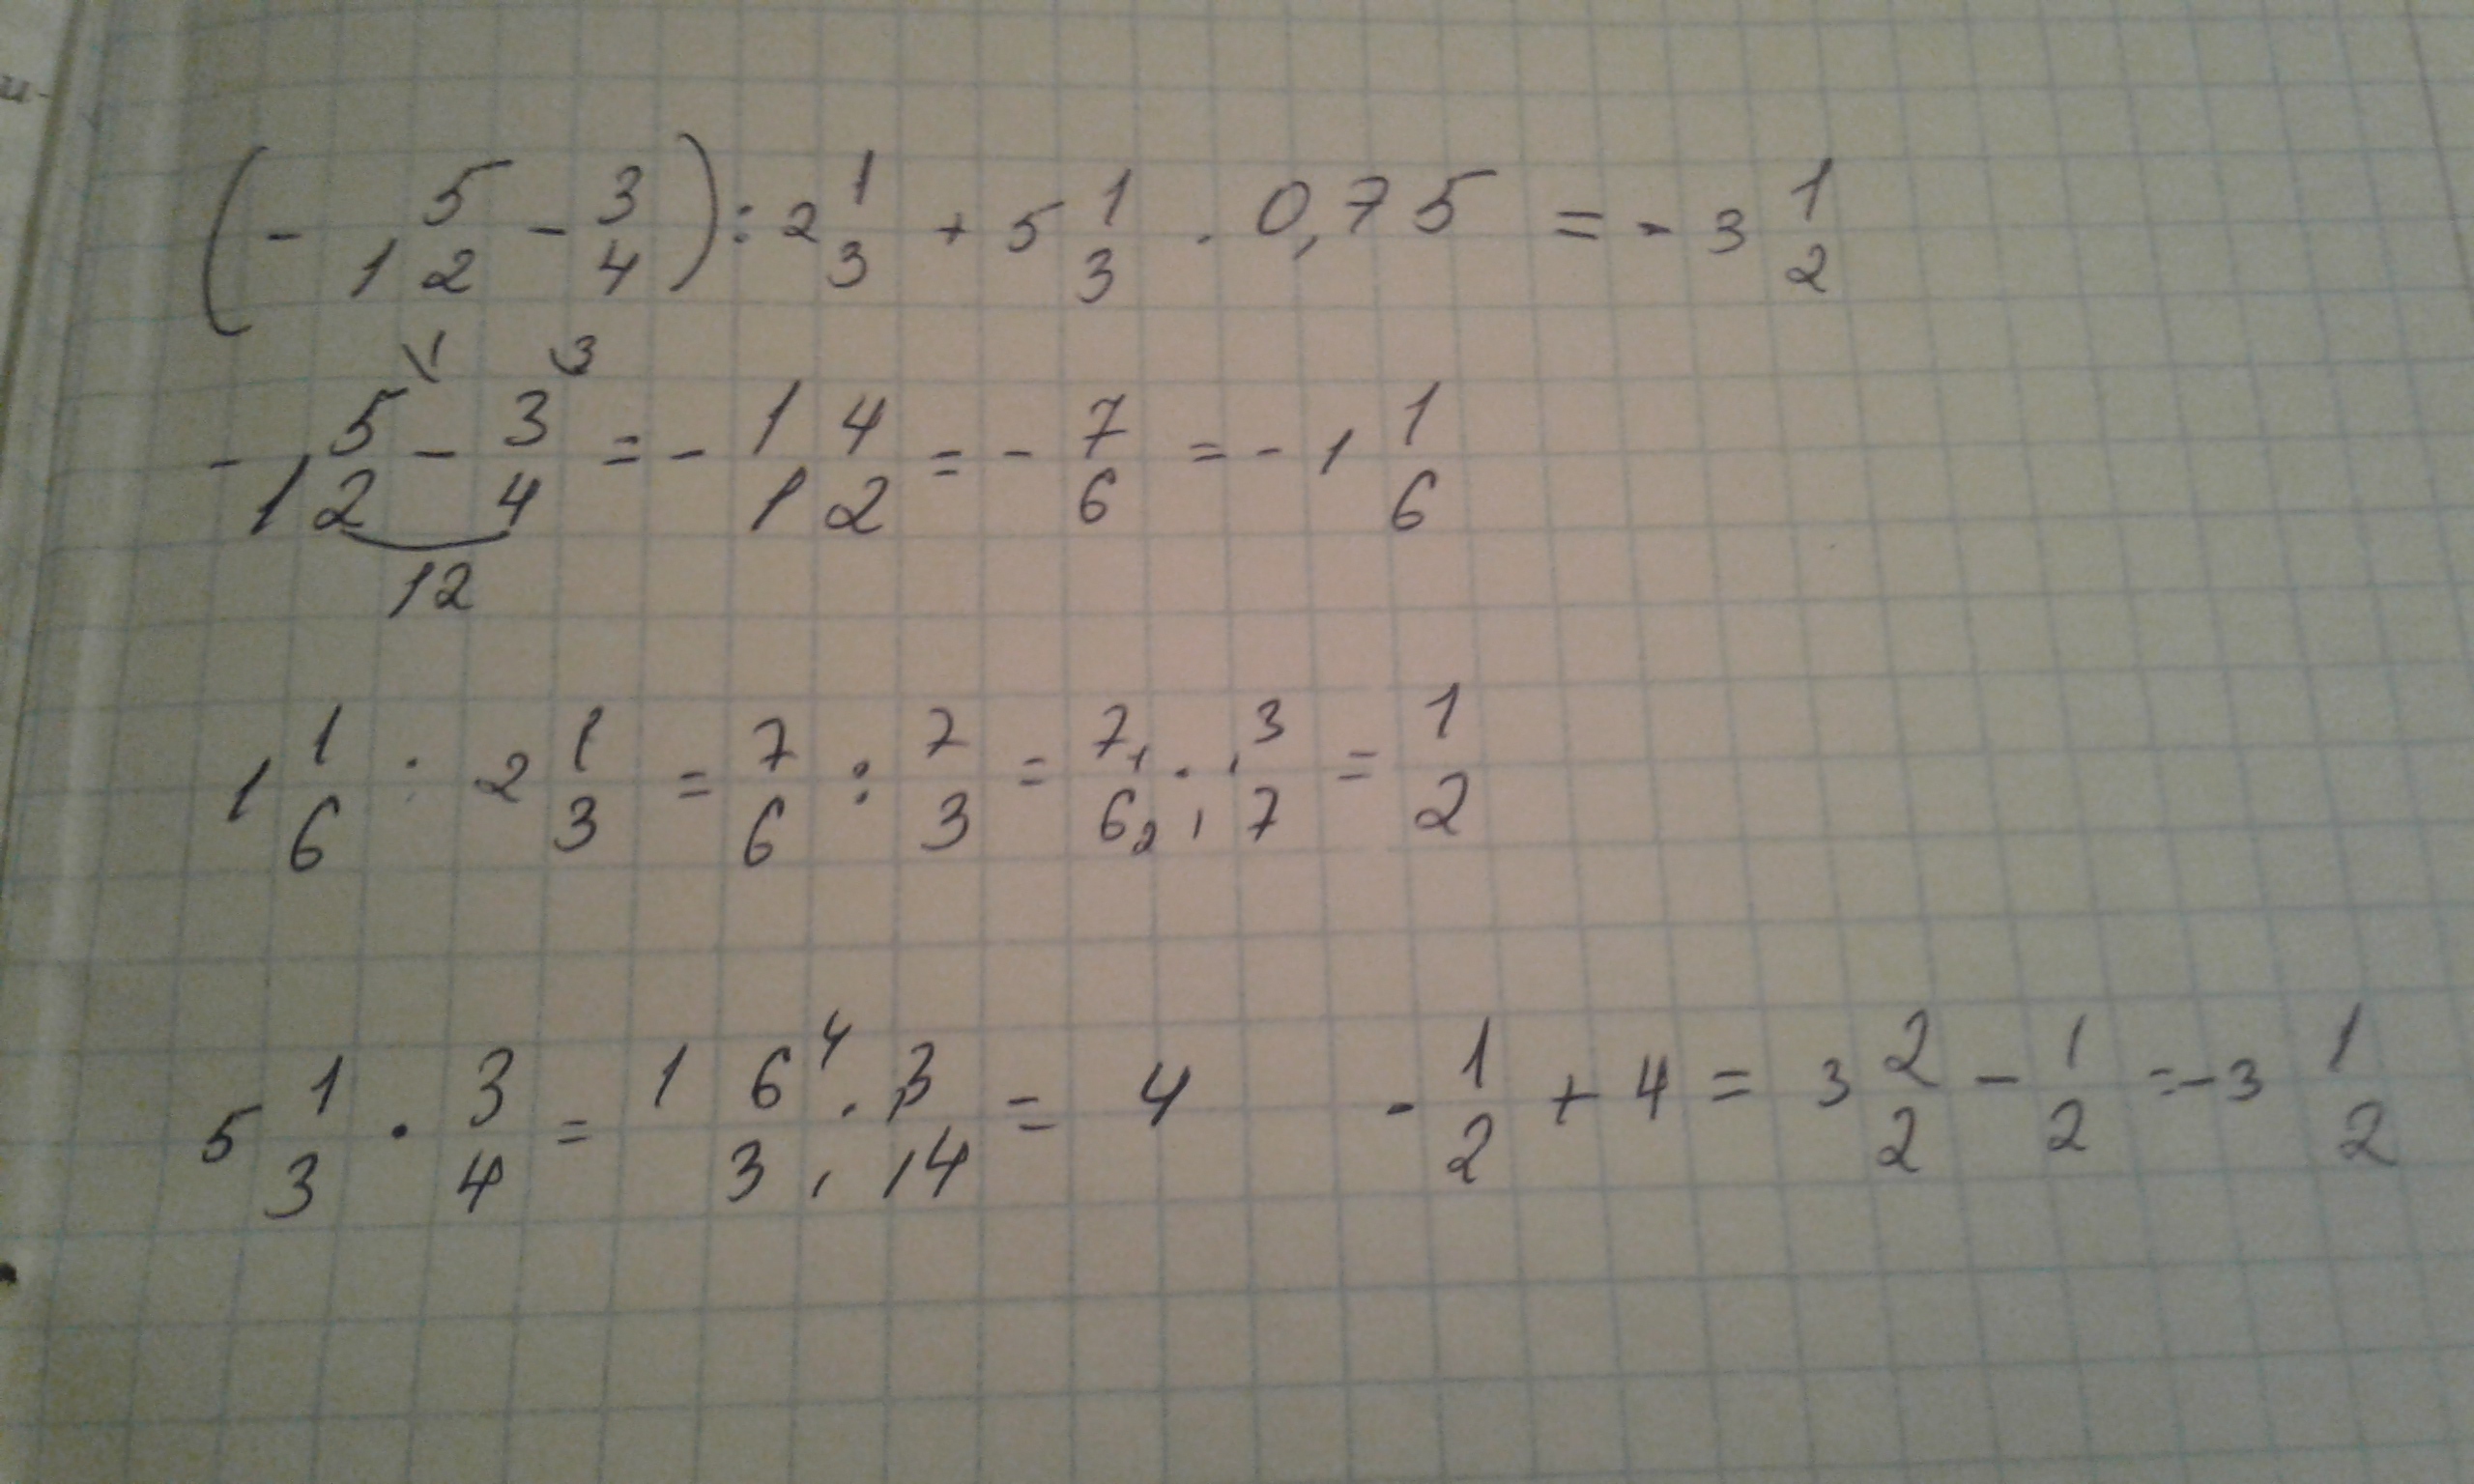 (- 5/12 - 3/4) : 2 1/3 + 5 1/3 · 0,75 = - 3 1/2
- 5/12 \1 - 3/4 \3 = - 14/12 = - 7/6 = - 1 1/6
12
1 1/6 : 2 1/3 = 7/6 : 7/3 = 7 1/6 2 · 1 3/1 7 = 1/2
5 1/3 · 3/4 = 16 4/3 1 · 1 3/1 4 = 4 - 1/2 + 4 = 3 2/2 - 1/2 = - 3 1/2